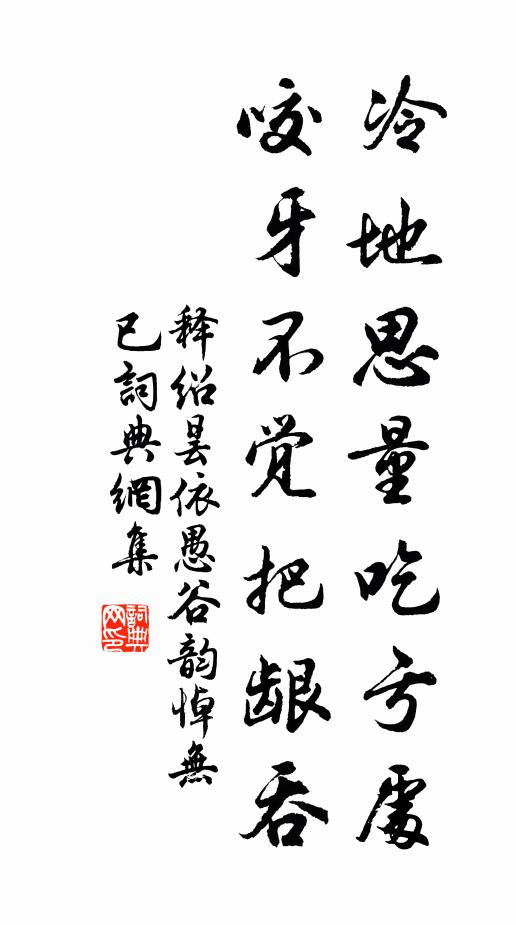 冷地思量吃亏處
咬牙不觉把龈吞
释绍昙依愚谷韵悼無
已詞典網集
詞典网印